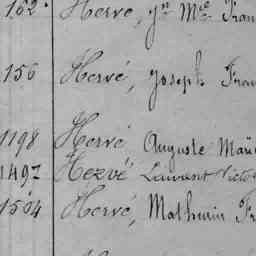 162. Hervé, Jn Mie Fran
156 Hervé, Joseph Fran
1198 Hervé Auguste
1497 Hervé Laurent Victor
1504 Hervé, Mathurin Fr